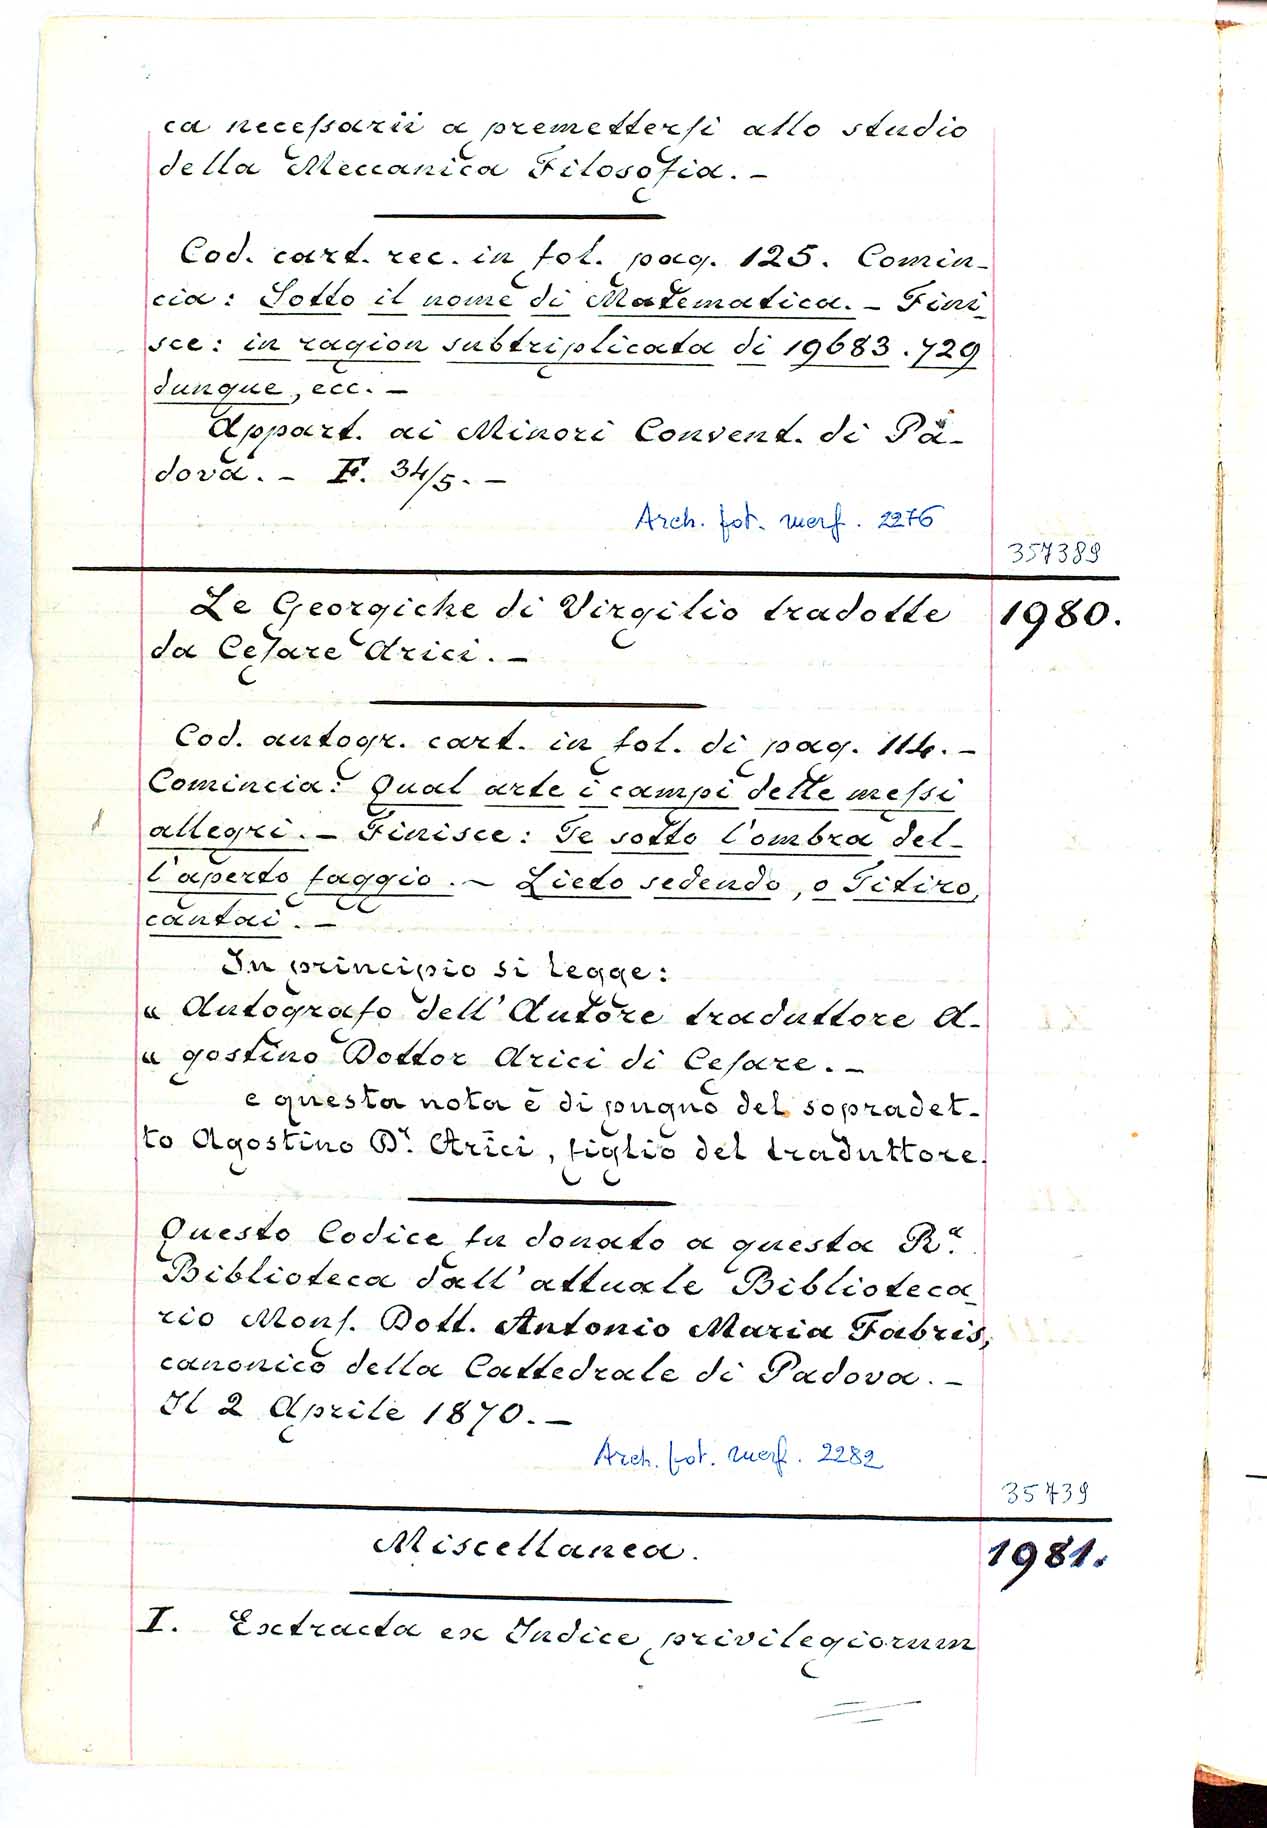 ca neceſsarii a premetterſi allo studio
della Meccanica Filosofia. –
Cod. cart. rec. in fol. pag. 125. Comin-
cia: Sotto il nome di Matematica. – Fini-
sce: in ragion subtriplicata di 19683. 729
dunque, ecc. –
Appart. ai Minori Convent. di Pa-
dova. – F. 34/5. –
Arch. fot. 2276
357389
Le Georgiche di Virgilio tradotte 1980.
da Ceſare Arici. –
Cod. autogr. cart. in fol. di pag. 114. –
Comincia: Qual arte i campi delle meſsi
allegri. – Finisce: Te sotto l'ombra del-
l'aperto faggio. – Lieto sedendo, o Titiro,
cantai. –
In principio si legge:
" Autografo dell'Autore traduttore A-
" gostino Dottor Arici di Ceſare. –
e questa nota è di pugno del sopradet-
to Agostino Dr. Arici, figlio del traduttore.
Questo Codice fu donato a questa Ra.
Biblioteca dall'attuale Biblioteca-
rio Monſ. Dott. Antonio Maria Fabris,
canonico della Cattedrale di Padova. –
Il 2 Aprile 1870. –
Arch. fot. 2282
35739
Miscellanea. 1981.
I. Extracta ex Indice privilegiorum